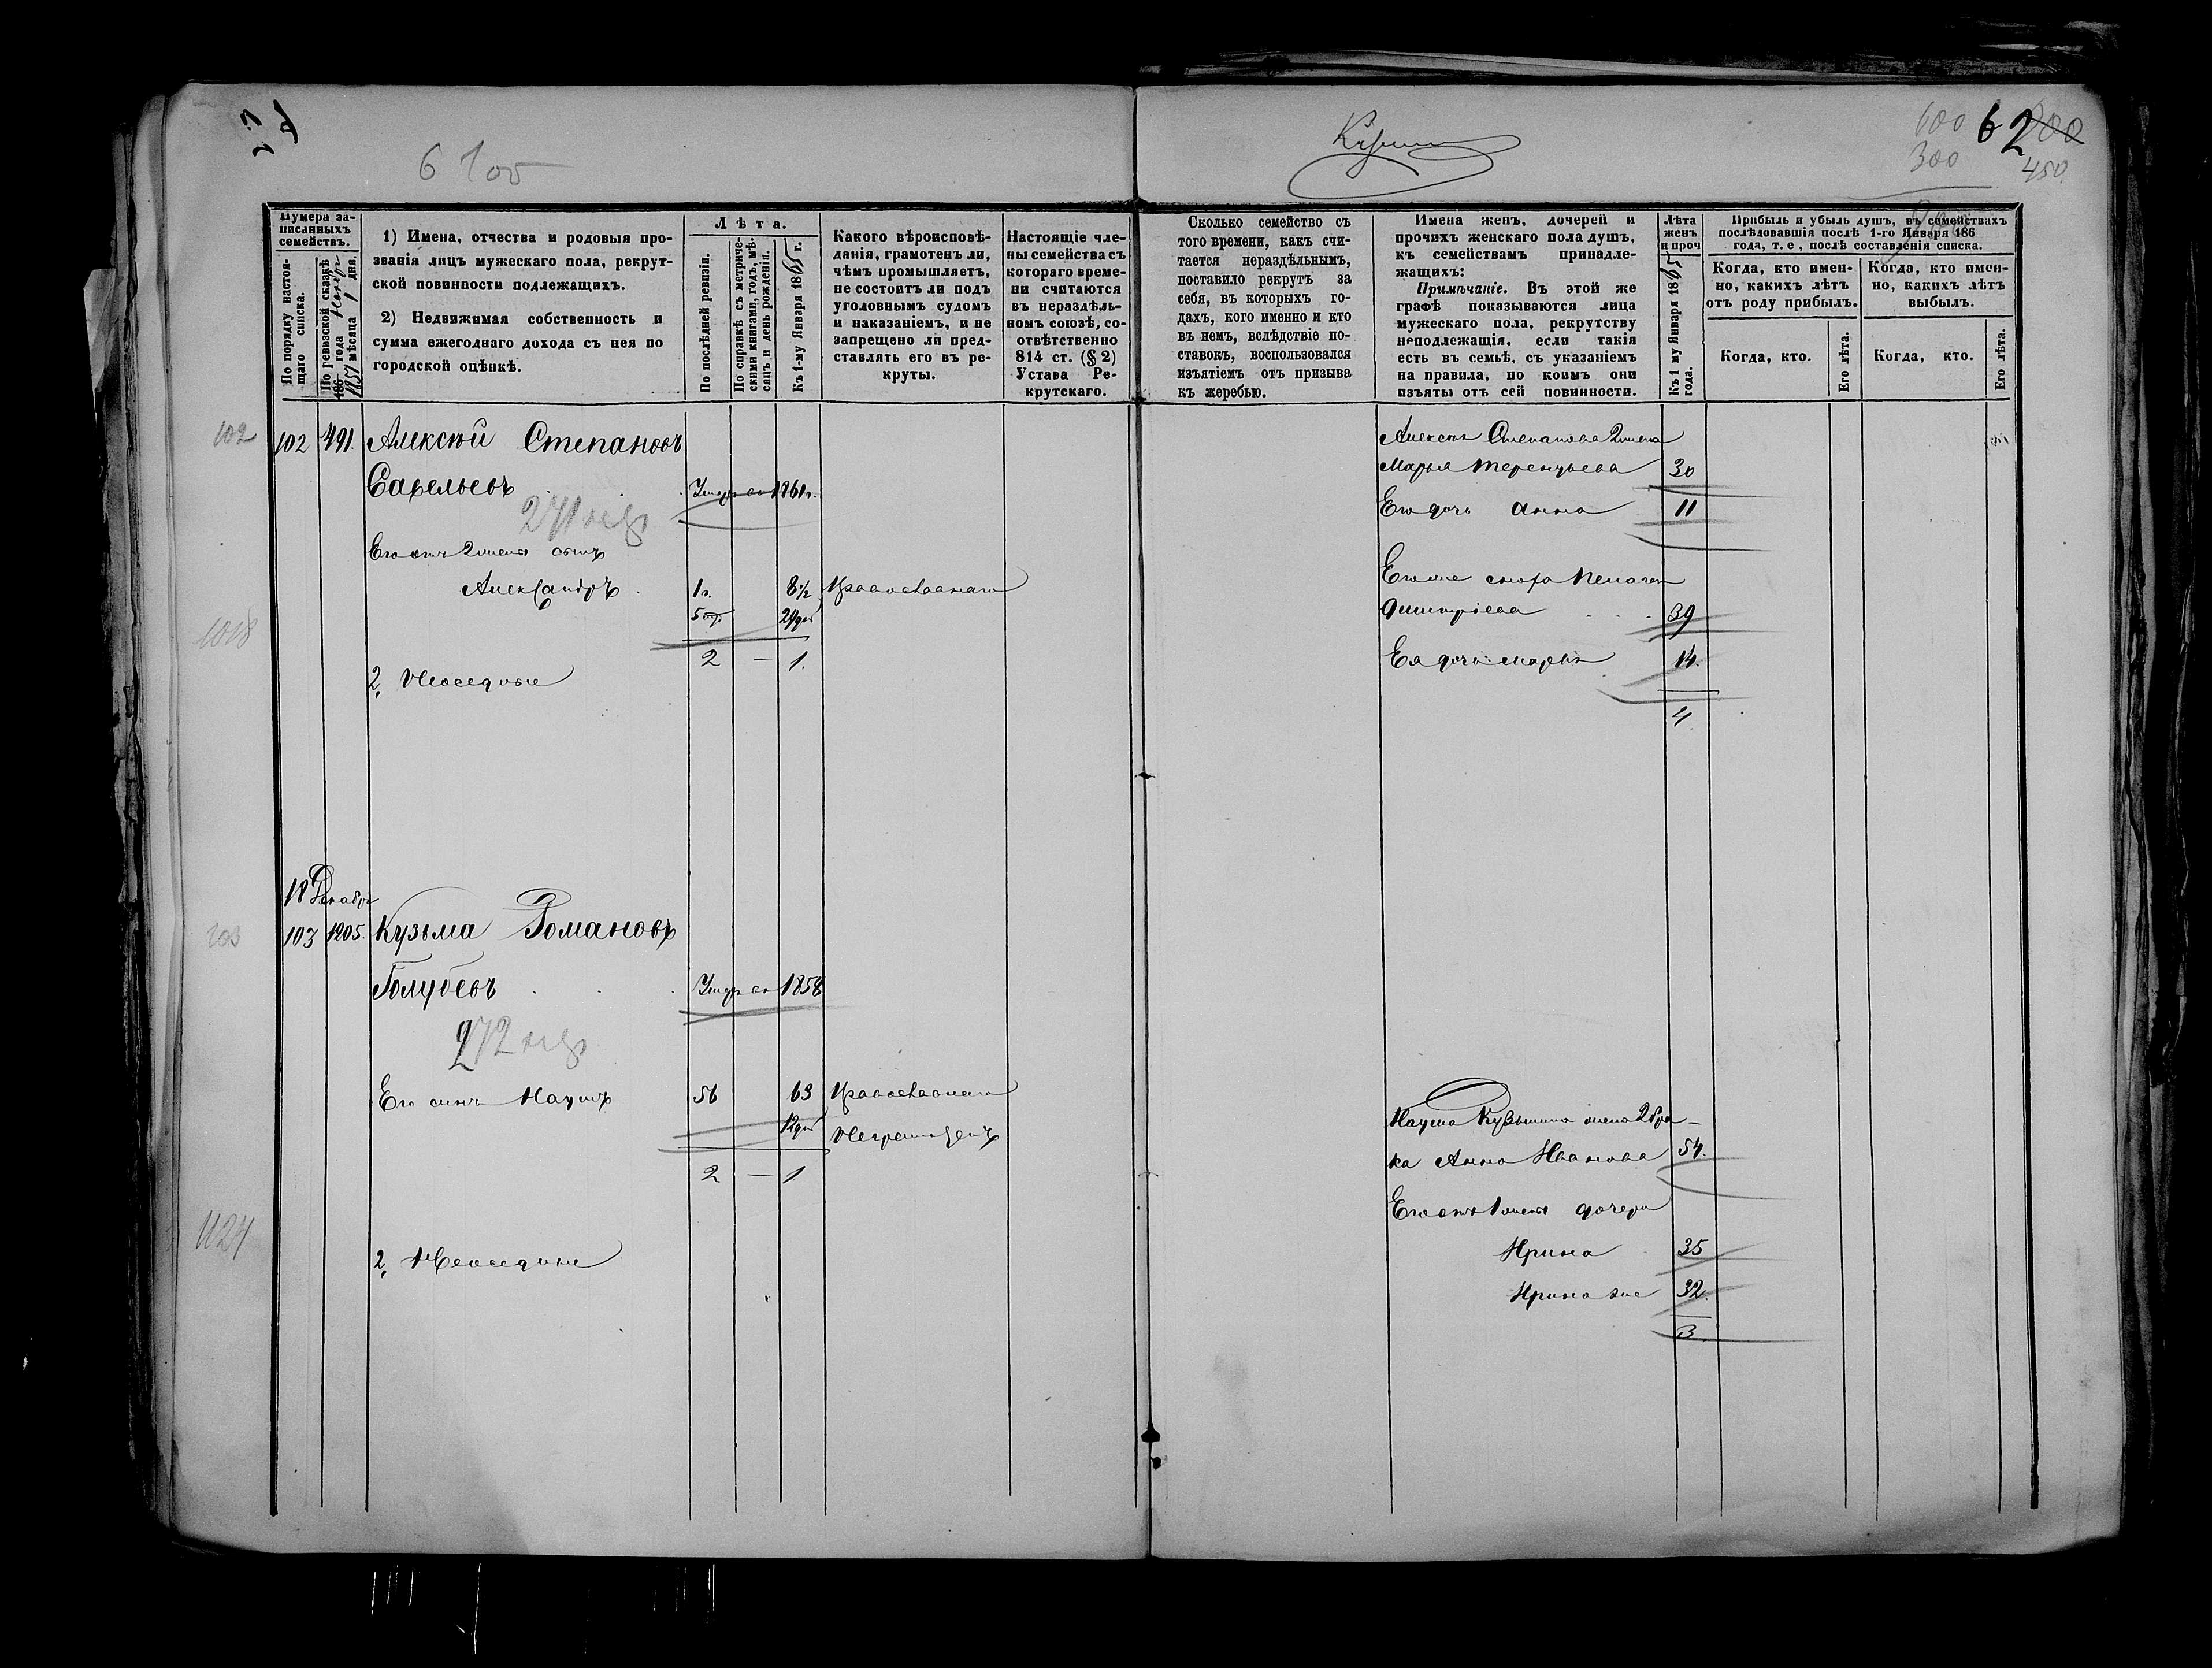 6 700
62
600
300
450
Нумера за-
писанныхъ
семействъ.
По порядку настоя-
щаго списка.
По ревизской сказкѣ
186 года
1857 мѣсяца 1 дня.
1) Имена, отчества и родовыя про-
званія лицъ мужескаго пола, рекрут-
ской повинности подлежащихъ.
2) Недвижимая собственность и
сумма ежегоднаго дохода съ нея по
городской оцѣнкѣ.
Лѣта.
По послѣдней ревизіи.
По справкѣ съ метриче-
скими книгами, годъ, мѣ-
сяцъ и день рожденія.
Къ 1-му Января 1865 г.
Какого вѣроисповѣ-
данія, грамотенъ ли,
чѣмъ промышляетъ,
не состоитъ ли подъ
уголовнымъ судомъ
и наказаніемъ, и не
запрещено ли пред-
ставлять его въ ре-
круты.
Настоящіе чле-
ны семейства съ
котораго време-
ни считаются
въ нераздѣль-
номъ союзѣ, со-
отвѣтственно
814 ст. (§ 2)
Устава Ре-
крутскаго.
Сколько семейство съ
того времени, какъ счи-
тается нераздѣльнымъ,
поставило рекрутъ за
себя, въ которыхъ го-
дахъ, кого именно и кто
въ немъ, вслѣдствіе по-
ставокъ, воспользовался
изъятіемъ отъ призыва
къ жеребью.
Имена женъ, дочерей и
прочихъ женскаго пола душъ,
къ семействамъ принадле-
жащихъ:
Примѣчаніе. Въ этой же
графѣ показываются лица
мужескаго пола, рекрутству
неподлежащія, если такія
есть въ семьѣ, съ указаніемъ
на правила, по коимъ они
изъяты отъ сей повинности.
Лѣта
женъ
и проч
Къ 1 му Января 1865
года.
Прибыль и убыль душъ, въ семействахъ
послѣдовавшія послѣ 1-го Января 186
года, т. е, послѣ составленія списка.
Когда, кто имен-
но, какихъ лѣтъ
отъ роду прибылъ.
Когда, кто имен-
но, какихъ лѣтъ
выбылъ.
Когда, кто.
Его лѣта.
Когда, кто.
Его лѣта.
102 102 491. Алексѣй Степановъ
Савельевъ Умеръ въ 1861 г.
271
Его отъ 2 жены сынъ
Александръ 1 г. 8 1/2 Православнаго
29 дня
1018
2 — 1.
2,
Алексѣя Степанова 2 жена
Марья Терентьева 30
Его дочь Анна 11
Его же сноха Пелагея
Дмитріева 39
Ея дочь Марья 14.
4
18 Декабря
103 103 1205. Кузьма Романовъ
Голубевъ Умеръ въ 1858
272
Его сынъ Наумъ 56 63 Православнаго
12 дня
2 — 1
1124
2,
Наума Кузьмина жена 2 бра-
ка Анна Иванова 54.
Его отъ 1 жены дочери
Ирина 35
Ирина же 32.
3.